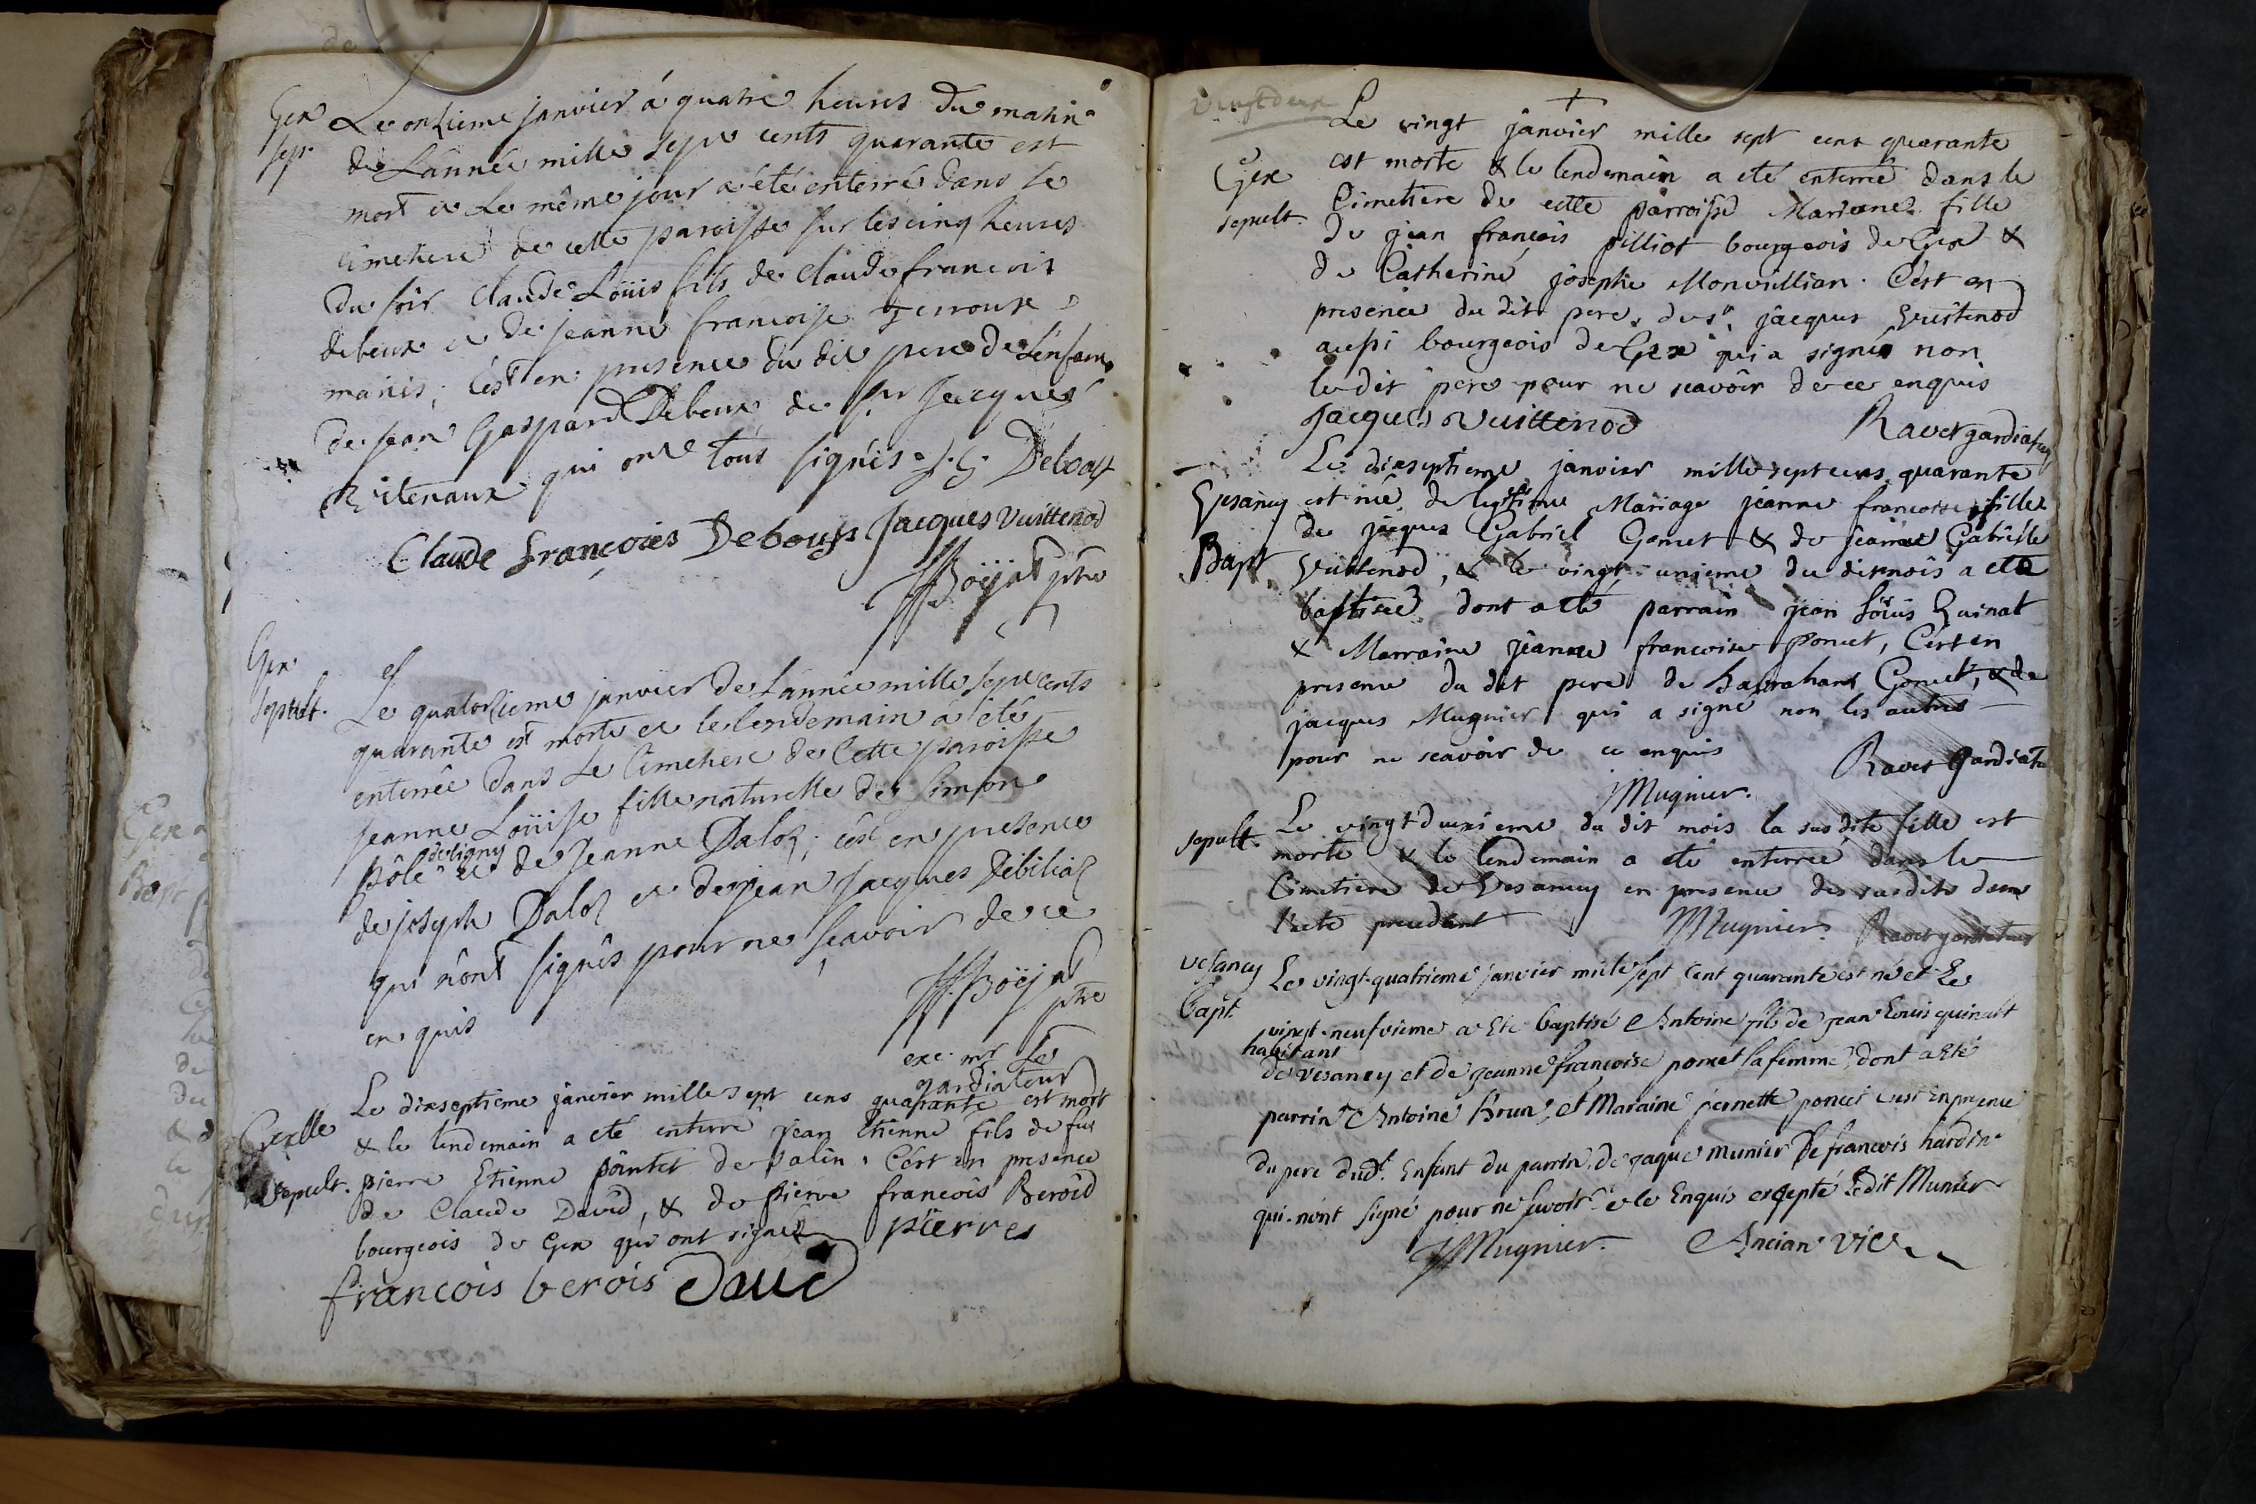 Gex
Sep.
Le onzieme janvier á quatre heures du matin
de L'année mille sept cents quarante est
mort et Le même jour a été enterré dans le
cimetiere de cette paroisse sur les cinq heures
du soir Claude Loüis fils de Claude francois
deboux et de jeanne francoise
mariés; c'est en presence du dit pere de L'enfant
de jean Gaspard Deboux de sr Jacques
Vuitenaux qui ont tous signés. J. G. Deboux
Claude François Deboux Jacques Vuittenod
Böijat ptre
Gex
Sepult.
Le quatorzieme janvier de L'année mille sept cents
quarante est morte et le lendemain a été
enterrée dans Le Cimetiere de Cette paroisse
jeanne Loüise fille naturelle de Simon
de ligny
pôle et de Jeanne Daloz; c'est en presence
de joseph Daloz et de jean Jacques Debiliaz
qui n'ont signés pour ne sçavoir de ce
en quis
Böijat
ptre
exc. mr Le
gardiateur
Gex lle
sepult.
Le dixseptieme janvier mille sept cens quarante est mort
& le lendemain a eté enterré jean Etienne fils de fut
pierre Etienne pointet de salin. C'est en presence
de Claude David, & de pierre francois Beroid
bourgeois de Gex qui ont signéz pierres
francois berois David
vingt deux
Gex
sepult.
Le vingt janvier mille sept cent quarante
est morte & le lendemain a eté enterrée dans le
Cimetiere de cette parroisse Mariane fille
de jean francois pilliot bourgeois de Gex &
de Catherine josephe Monvillian. C'est en
presence du dit pere, du sr. jacques Vuitenod
aussi bourgeois de Gex qui a signé non
le dit pere pour ne scavoir de ce enquis
Jacques Vuittenod Ravet gardiateur
Vesancy
Bapt
Le dixseptieme janvier mille sept cens quarante
est née de legitime Mariage jeanne francoise fille
de jacques Gabriel Gonet & de jeanne Gabrielle
Vuittenod, & le vingt unieme du dit mois a eté
baptisée dont a eté parrain jean Loüis Quinat
& Marraine jeanne francoise Poncet, C'est en
presence du dit pere de habrahant Gonet, & de
jacques Mugnier qui a signé non les autres
pour ne scavoir de ce enquis Ravet Gardiateur
JMugnier.
sepult.
Le vingt deuxieme du dit mois la susdite fille est
morte & le lendemain a eté enterrée dans le
Cimetiere de Vesancy en presence des susdits dans
l'acte precedent JMugnier. Ravet gardiateur
Vesancy
bapt.
Le vingt-quatrieme janvier mile sept Cent quarante est né et Le
vingt-neufvieme a Eté baptisé Antoine fils de jean Louis quinalt
habitant
de vesancy et de jeanne françoise poncet sa femme, dont a Eté
parrin Antoine Brun, et Maraine pernette poncet c'est En prezence
du pere dudt. Enfant du parrin, de jaque Munier De francois hardin
qui n'ont signé pour ne scavoir de le Enquis excepté Ledit Munier
JMugnier. Ancian vice